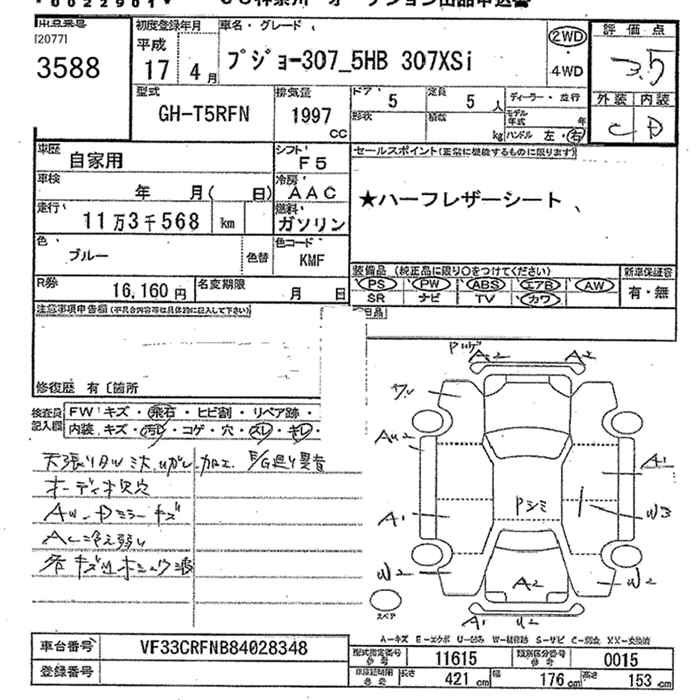 3588
初度登録年月
平成
17 4月
車名・グレード
プジョー307_5HB 307XSi
2WD
・
4WD
評価点
3.5
外装 内装
C D
型式
GH-T5RFN
排気量
1997
CC
ドア 5
定員 5 人
形状
積載
kg
ディーラー・並行
モデル年式 年
ハンドル 左・右
車歴
自家用
シフト
F5
セールスポイント(正常に機能するものに限ります)
★ハーフレザーシート
車検
年 月( 日)
冷房
AAC
走行
11万3千568 km
燃料
ガソリン
色
ブルー
色替
色コード
KMF
R券
16,160円
名変期限
月 日
装備品 (純正品に限り○をつけてください)
PS PW ABS エアB AW
SR ナビ TV カワ
新車保証書
有・無
注意事項申告欄(不具合内容等は具体的に記入して下さい)
修復歴 有〔箇所
検査員
記入欄
FW キズ・飛石・ヒビ割・リペア跡・
内装 キズ・汚レ・コゲ・穴・スレ・キレ
オーディオ欠穴
AW-Dミラーキズ
AC冷え弱い
A2 A2
AU2
A1
A1
W3
W2
W2
A2
A1 U2
スペア
A-キズ E-エクボ U-凹み W-補修跡 S-サビ C-腐食 XX-交換済
車台番号
VF33CRFNB84028348
登録番号
型式指定番号
参考
11615
類別区分番号
参考
0015
長さ 421cm
幅 176cm
高さ 153cm